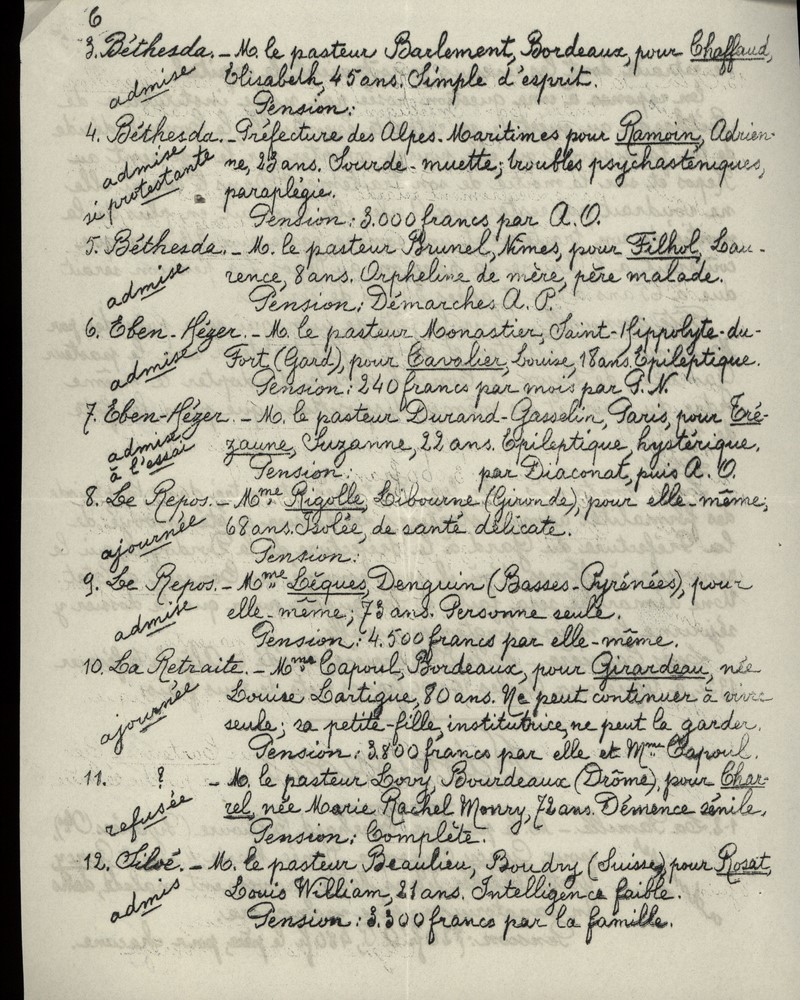 6
3. Béthesda. - M. le pasteur Barlement, Bordeaux, pour Chaffaud,
admise
Elisabeth, 45 ans. Simple d'esprit.
Pension:
4. Béthesda. - Préfecture des Alpes-Maritimes pour Ramoin, Adrien-
admise
si protestante
ne, 23 ans. Sourde-muette; troubles psychasténiques,
paraplégie.
Pension: 3.000 francs par A.O.
5. Béthesda. - M. le pasteur Brunel, Nîmes, pour Filhol, Lau-
admise
rence, 8 ans. Orpheline de mère, père malade.
Pension: Démarches A. P.
6. Eben-Hézer. - M. le pasteur Monastier, Saint-Hippolyte-du-
admise
Fort (Gard), pour Cavalier, Louise, 18 ans. Epileptique.
Pension: 240 francs par mois par P. N.
7. Eben-Hézer. - M. le pasteur Durand-Gasselin, Paris, pour Tré-
admise
à l'essai
zaune, Suzanne, 22 ans. Epileptique, hystérique.
Pension: par Diaconat, puis A. O.
8. Le Repos. - Mme Rigolle, Libourne (Gironde), pour elle-même;
ajournée
68 ans. Isolée, de santé délicate.
Pension:
9. Le Repos. - Mme Lêques, Denguin (Basses-Pyrénées), pour
admise
elle-même; 73 ans. Personne seule.
Pension: 4.500 francs par elle-même.
10. La Retraite. - Mme Capoul, Bordeaux, pour Girardeau, née
ajournée
Louise Lartigue, 80 ans. Ne peut continuer à vivre
seule; sa petite-fille, institutrice, ne peut la garder.
Pension: 3.800 francs par elle et Mme Capoul.
11. ? - M. le pasteur Lovy, Bourdeaux (Drôme), pour Char-
refusée
rel, née Marie Rachel Monry, 72 ans. Démence sénile.
Pension: Complète.
12. Siloé. - M. le pasteur Beaulieu, Boudry (Suisse) pour Rosat,
admis
Louis William, 21 ans. Intelligence faible.
Pension: 3.300 francs par la famille.